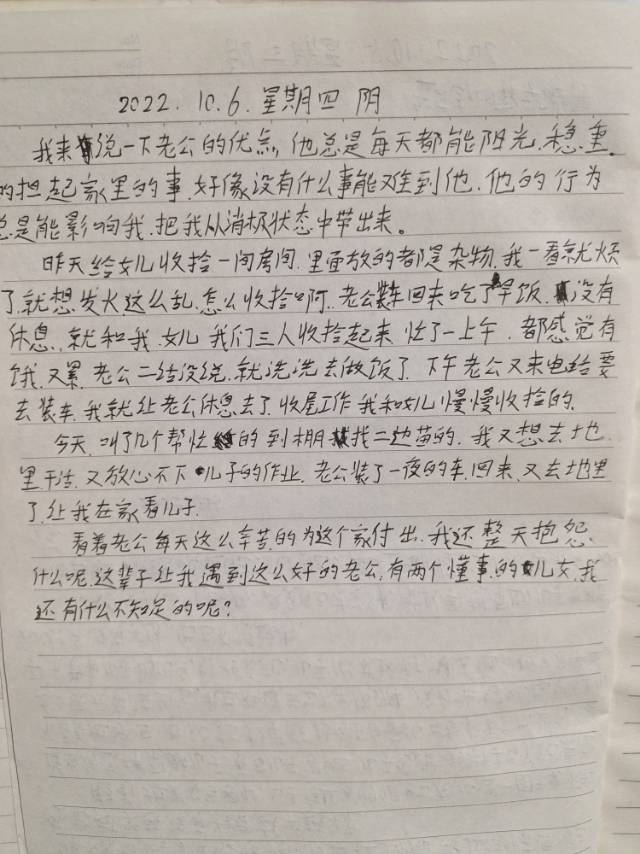 2022.10.6.星期四 阴
我来说一下老公的优点,他总是每天都能阳光.稳重.
的担起家里的事.好像没有什么事能难到他.他的行为
总是能影响我.把我从消极状态中带出来。
昨天给女儿收拾一间房间.里面放的都是杂物.我一看就烦
了.就想发火这么乱.怎么收拾啊.老公装车回来吃了早饭.没有
休息.就和我.女儿.我们三人收拾起来.忙了一上午.都感觉有
饿.又累.老公二话没说.就洗洗去做饭了.下午老公又来电话要
去装车.我就让老公休息去了.收尾工作我和女儿慢慢收拾的.
今天.叫了几个帮忙的到棚找二边苗的.我又想去地
里干活.又放心不下儿子的作业.老公装了一夜的车.回来.又去地里
了.让我在家看儿子.
看着老公每天这么辛苦的为这个家付出.我还整天抱怨
什么呢.这辈子让我遇到这么好的老公,有两个懂事的儿女,我
还有什么不知足的呢?